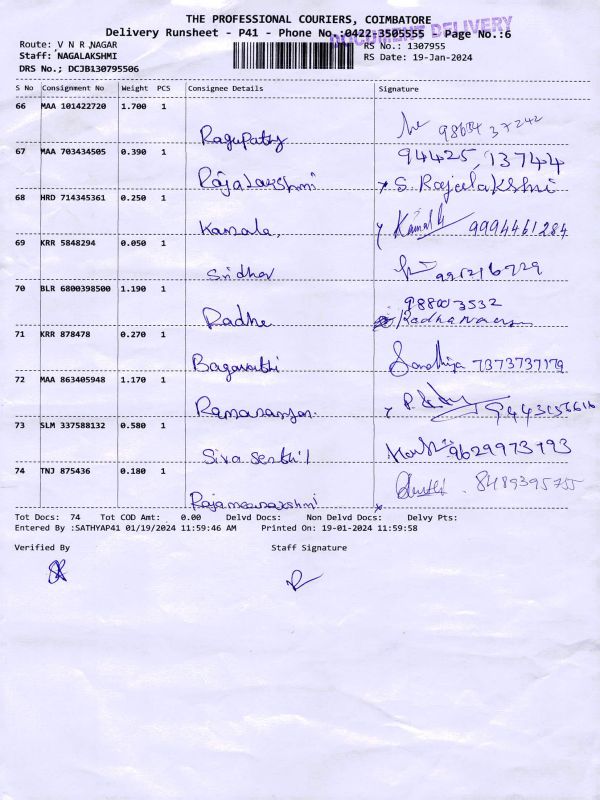 THE PROFESSIONAL COURIERS, COIMBATORE
DOCUMENT DELIVERY
Delivery Runsheet - P41 - Phone No.:0422-3505555 - Page No.:6
Route: V N R NAGAR RS No.: 1307955
Staff: NAGALAKSHMI RS Date: 19-Jan-2024
DRS No.; DCJB130795506
S No Consignment No Weight PCS Consignee Details Signature
66 MAA 101422720 1.700 1
Ragupathy
67 MAA 703434505 0.390 1 94425 13744
Rajalakshmi S. Rajalakshmi
68 HRD 714345361 0.250 1
Kamala. 9994461284
69 KRR 5848294 0.050 1
Sridhar
70 BLR 6800398500 1.190 1
Radhe
71 KRR 878478 0.270 1
Bagavathi Sandhiya 7373737179
72 MAA 863405948 1.170 1
73 SLM 337588132 0.580 1
Siva Senthil
74 TNJ 875436 0.180 1
Rajameenakshmi
Tot Docs: 74 Tot COD Amt: 0.00 Delvd Docs: Non Delvd Docs: Delvy Pts:
Entered By :SATHYAP41 01/19/2024 11:59:46 AM Printed On: 19-01-2024 11:59:58
Verified By Staff Signature